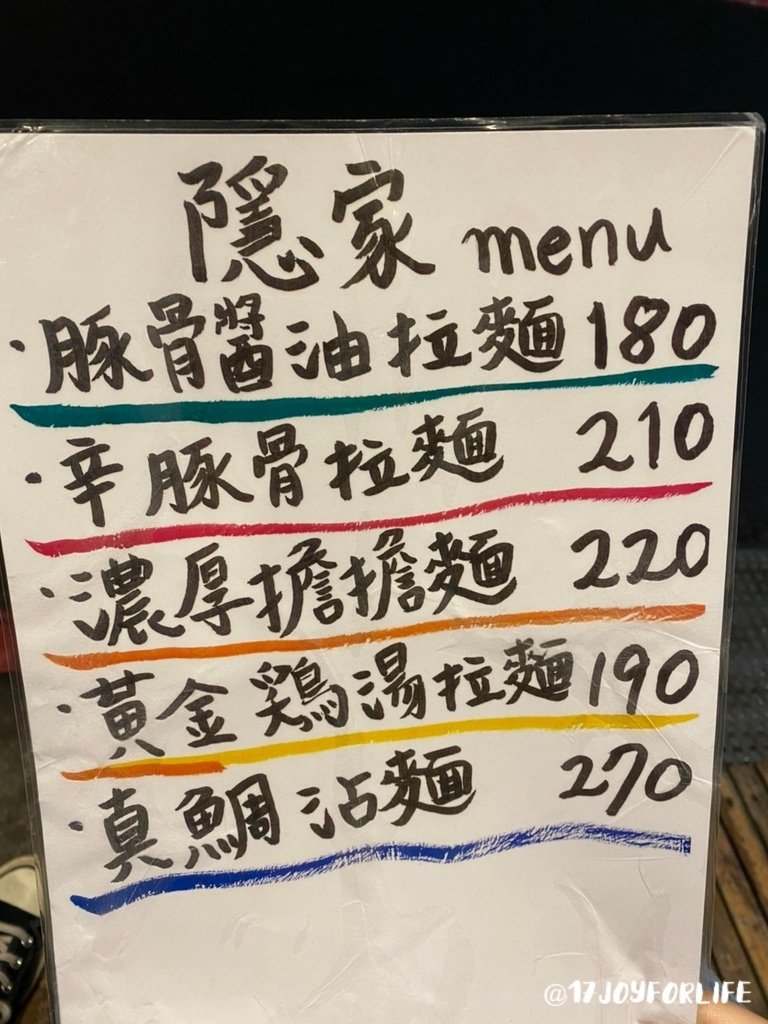 隱家 menu
·豚骨醬油拉麵 180
·辛豚骨拉麵 210
·濃厚擔擔麵 220
·黃金鶏湯拉麵 190
·真鯛沾麵 270
@17JOYFORLIFE